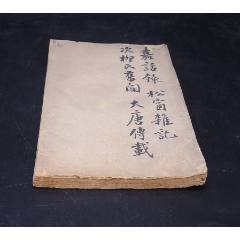 嘉話錄 松窗雜記
次柳氏舊聞 大唐傳載